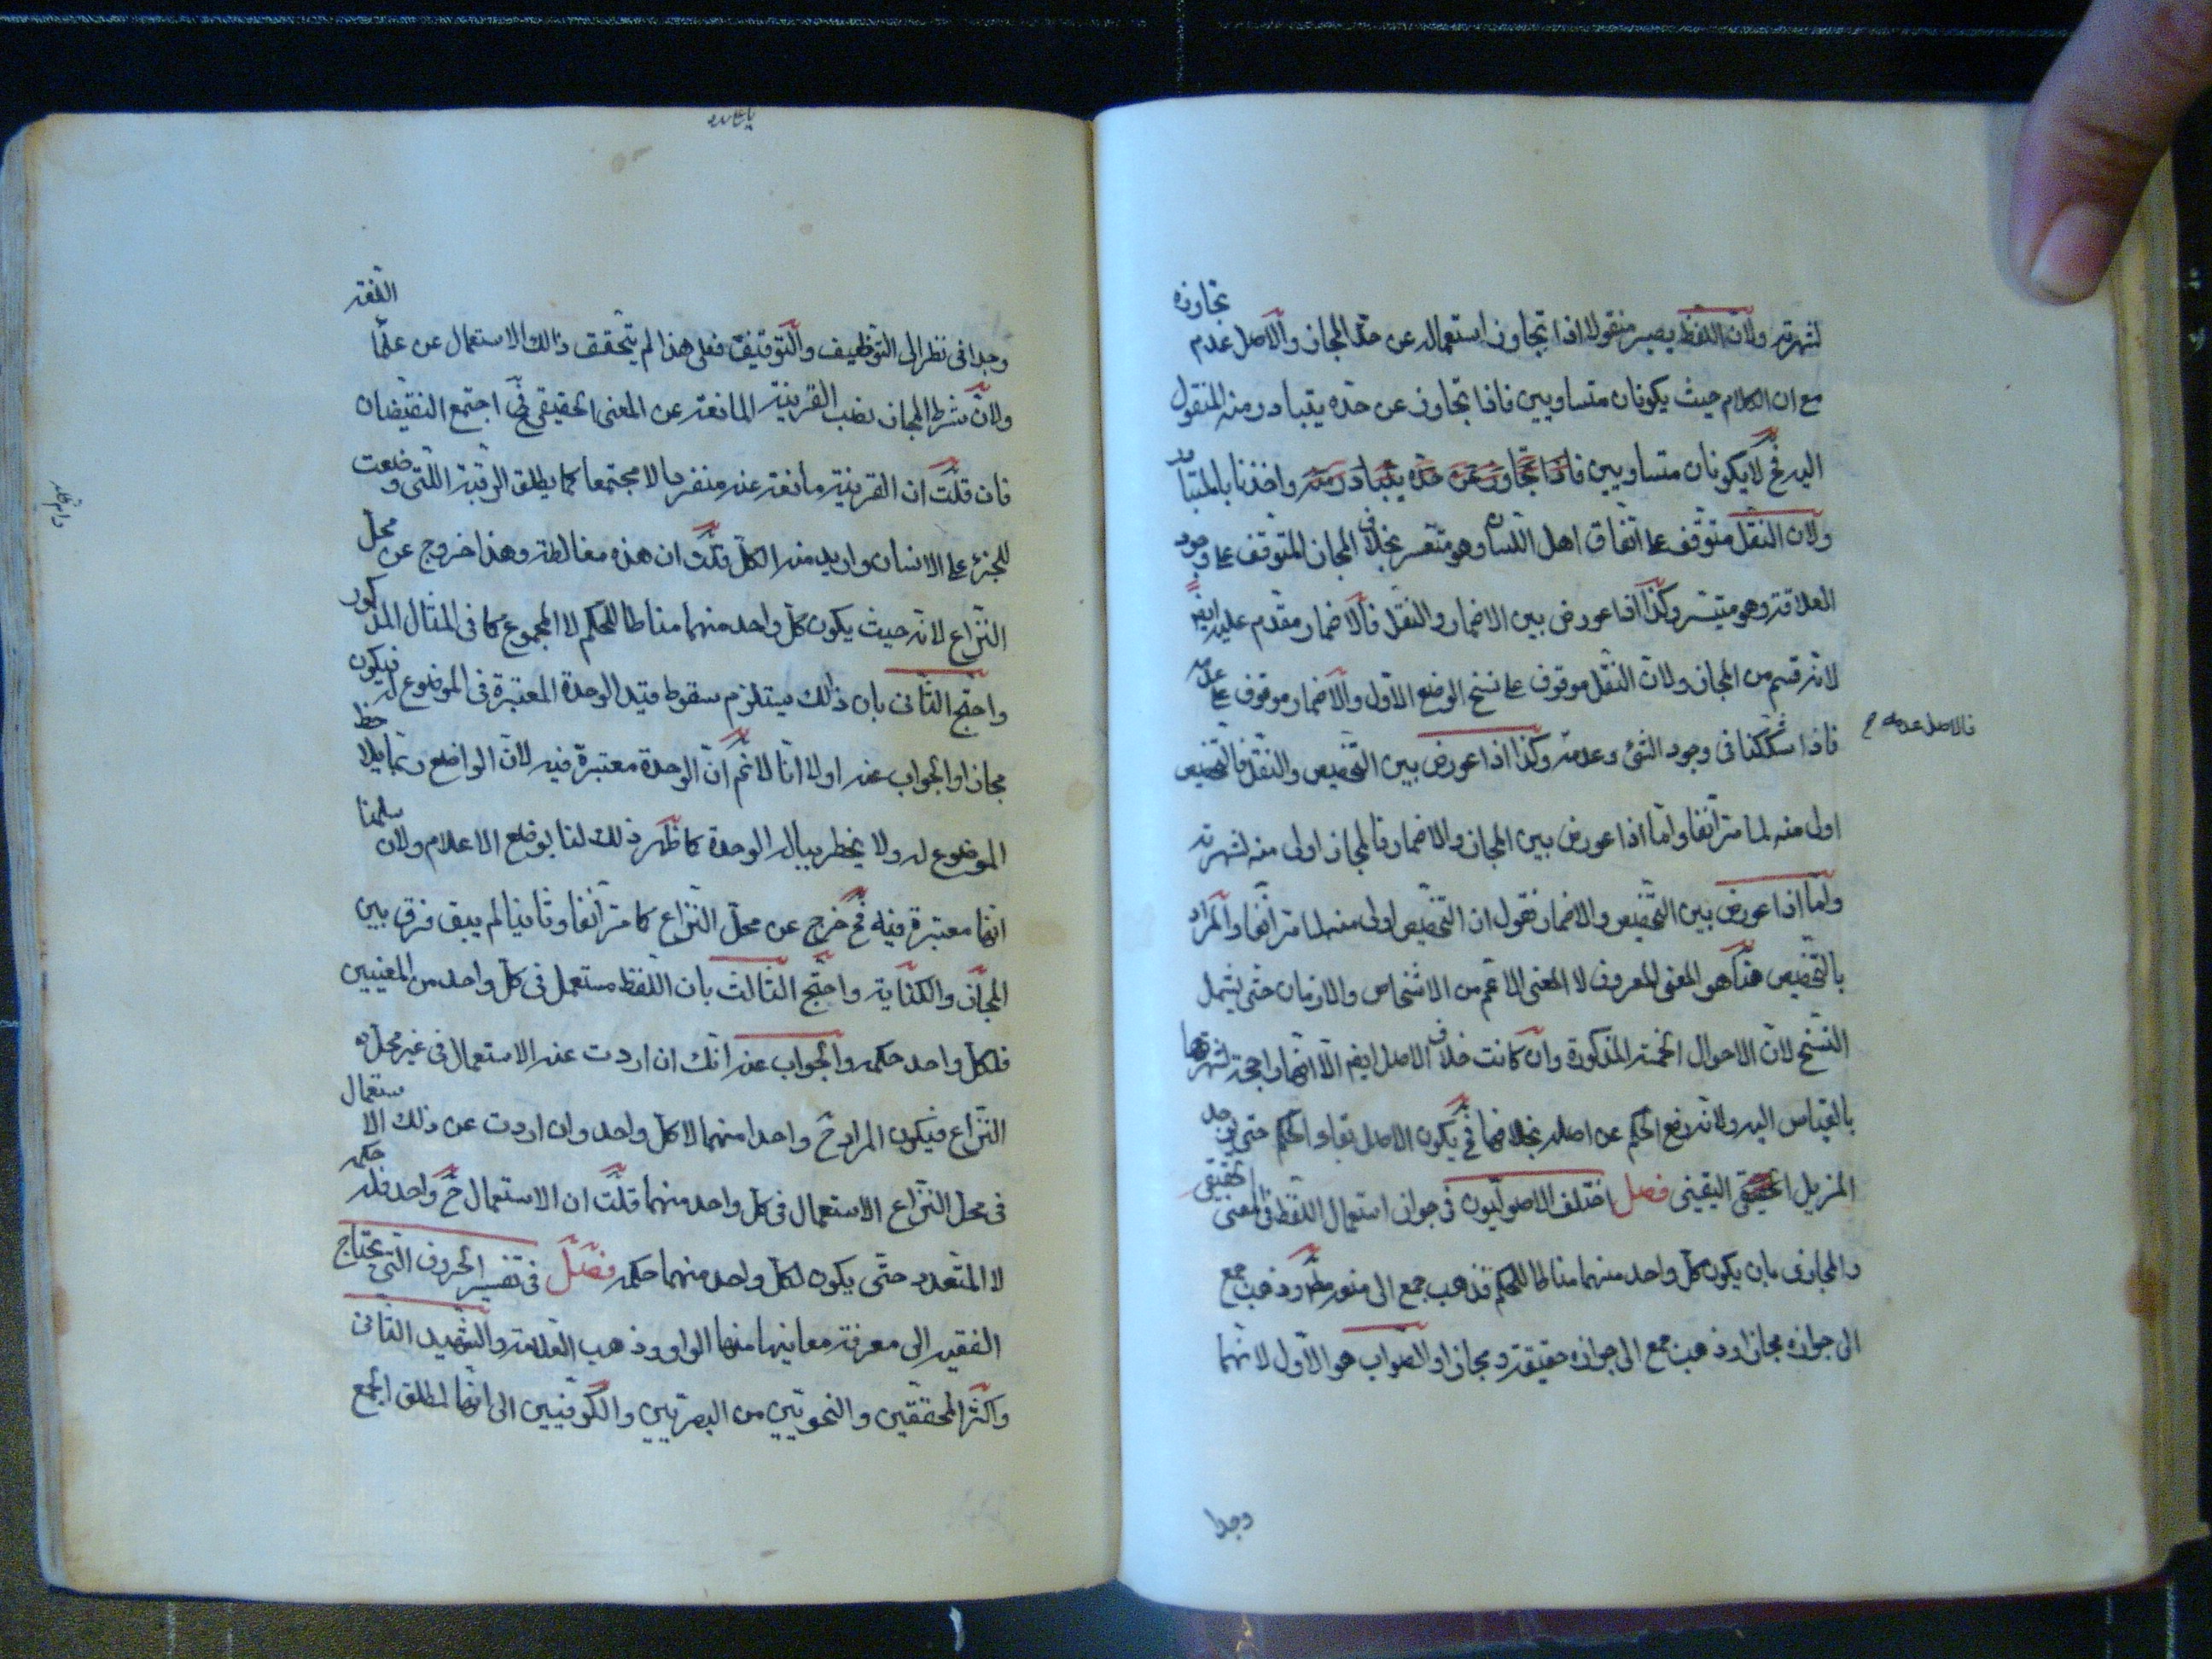 لشهرته ولان اللفظ يصير منقولا اذا تجاوز استعماله عن حد المجاز والاصل عدم تجاوزه
مع ان الكلام حيث يكونان متساويين فاذا تجاوز عن حده يتبادر منه المنقول
اليه فح لا يكونان متساويين فاذا تجاوز عن حده يتبادر منه واخذنا بالمتبادر
ولان النقل متوقف على اتفاق اهل اللسان وهو متعسر بخلاف المجاز المتوقف على وجود
العلاقة وهو متيسر وكذا اذا عورض بين الاضمار والنقل فالاضمار مقدم عليه ايضا
لانه قسم من المجاز ولان النقل موقوف على نسخ الوضع الاول والاضمار موقوف على عدمه
فاذا شككنا فى وجود الشئ وعدمه فالاصل عدمه وكذا اذا عورض بين التخصيص والنقل فالتخصيص
اولى منه لما مر آنفا واما اذا عورض بين المجاز والاضمار فالمجاز اولى منه لشهرته
واما اذا عورض بين التخصيص والاضمار فنقول ان التخصيص اولى منه لما مر آنفا والمراد
بالتخصيص هنا هو المعنى المعروف لا المعنى الاعم من الاشخاص والازمان حتى يشمل
النسخ لان الاحوال الخمسة المذكورة وان كانت خلاف الاصل ايضا الا انها راجحة لشهرتها
بالقياس اليه ولانه رفع الحكم عن اصله بخلافها فح يكون الاصل بقاء الحكم حتى يوجد
المزيل الحقيقى اليقينى فصل اختلف الاصوليون فى جواز استعمال اللفظ فى المعنى الحقيقى
والمجازى بان يكون كل واحد منهما مناطا للحكم فذهب جمع الى منعه مط وذهب جمع
الى جوازه مجازا وذهب جمع الى جوازه حقيقة ومجازا والصواب هو الاول لانهما
وجدا
وجدا فى نظر الى التوظيف والتوقيف فعلى هذا لم يتحقق ذالك الاستعمال عن علماء اللغة
ولان شرط المجاز نصب القرينة المانعة عن المعنى الحقيقى فح اجتمع النقيضان
فان قلت ان القرينة مانعة عنه منفردا لا مجتمعا كما يطلق الرقبة اللتى وضعت
للجزء على الانسان واريد منه الكل قلت ان هذه مغالطة وهذا خروج عن محل
النزاع لانه حيث يكون كل واحد منهما مناطا للحكم لا المجموع كما فى المثال المذكور
واحتج الثانى بان ذلك يستلزم سقوط قيد الوحدة المعتبرة فى الموضوع له فيكون
مجازا والجواب عنه اولا انا لا نم ان الوحدة معتبرة فيه لان الواضع ربما يلاحظ
الموضوع له ولا يخطر بباله الوحدة كما ظهر ذلك لنا بوضع الاعلام ولان سلمنا
انها معتبرة فيه فح خرج عن محل النزاع كما مر آنفا وثانيا لم يبق فرق بين
المجاز والكناية واحتج الثالث بان اللفظ مستعمل فى كل واحد من المعنيين
فلكل واحد حكمه والجواب عنه انك ان اردت عنه الاستعمال فى غير محل
النزاع فيكون المراد ح واحدا منهما لا كل واحد وان اردت عن ذلك الاستعمال
فى محل النزاع الاستعمال فى كل واحد منهما قلت ان الاستعمال ح واحد فله حكمه
لا المتعدد حتى يكون لكل واحد منهما حكمه فصل فى تفسير الحروف التى يحتاج
الفقيه الى معرفة معانيها منها الواو وذهب العلامة والشهيد الثانى
واكثر المحققين والنحويين من البصريين والكوفيين الى انها لمطلق الجمع